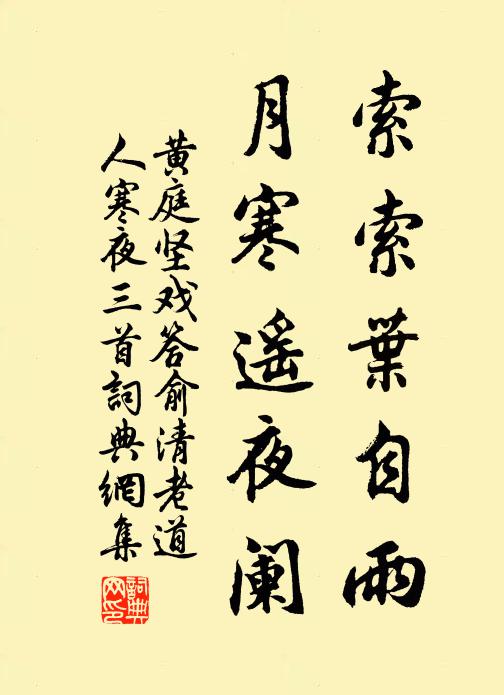 索索葉自雨
月寒遥夜阑
黄庭坚戏答俞清老道
人寒夜三首詞典網集
詞典網印